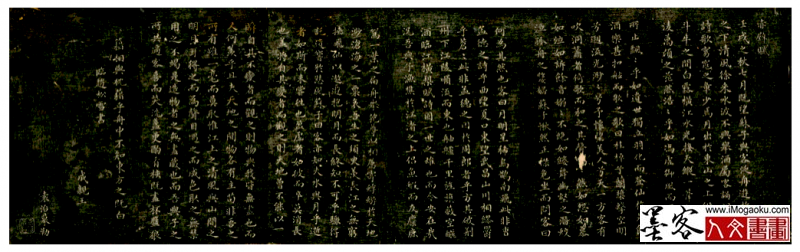 赤壁賦
壬戌之秋七月既望蘇子與客泛舟遊於赤壁
之下清風徐來水波不興舉酒屬客誦明月之
詩歌窈窕之章少焉月出於東山之上徘徊於
斗牛之間白露橫江水光接天縱一葦之所如
凌萬頃之茫然浩浩乎如馮虛御風而不知其
所止飄飄乎如遺世獨立羽化而登仙於是飲
酒樂甚扣舷而歌之歌曰桂棹兮蘭槳擊空明
兮泝流光渺渺兮予懷望美人兮天一方客有
吹洞簫者倚歌而和之其聲嗚嗚然如怨如慕
如泣如訴餘音嫋嫋不絕如縷舞幽壑之潛蛟
泣孤舟之嫠婦蘇子愀然正襟危坐而問客曰
何為其然也客曰月明星稀烏鵲南飛此非
孟德之詩乎西望夏口東望武昌山川相繆鬱
乎蒼蒼此非孟德之困於周郎者乎方其破荊
州下江陵順流而東也舳艫千里旌旗蔽空釃
酒臨江橫槊賦詩固一世之雄也而今安在哉
況吾與子漁樵於江渚之上侶魚蝦而友麋鹿
駕一葉之扁舟舉匏樽以相屬寄蜉蝣於天地
渺滄海之一粟哀吾生之須臾羨長江之無窮
挾飛仙以遨遊抱明月而長終知不可乎驟得
託遺響於悲風蘇子曰客亦知夫水與月乎逝
者如斯而未嘗往也盈虛者如彼而卒莫消長
也蓋將自其變者而觀之則天地曾不能以一
瞬自其不變者而觀之則物與我皆無盡也而
又何羨乎且夫天地之間物各有主苟非吾之
所有雖一毫而莫取惟江上之清風與山間之
明月耳得之而為聲目遇之而成色取之無禁
用之不竭是造物者之無盡藏也而吾與子之
所共適客喜而笑洗盞更酌肴核既盡杯盤狼
籍相與枕藉乎舟中不知東方之既白
臨趙松雪書
墨客
www.iMogaoku.com
人文書畫